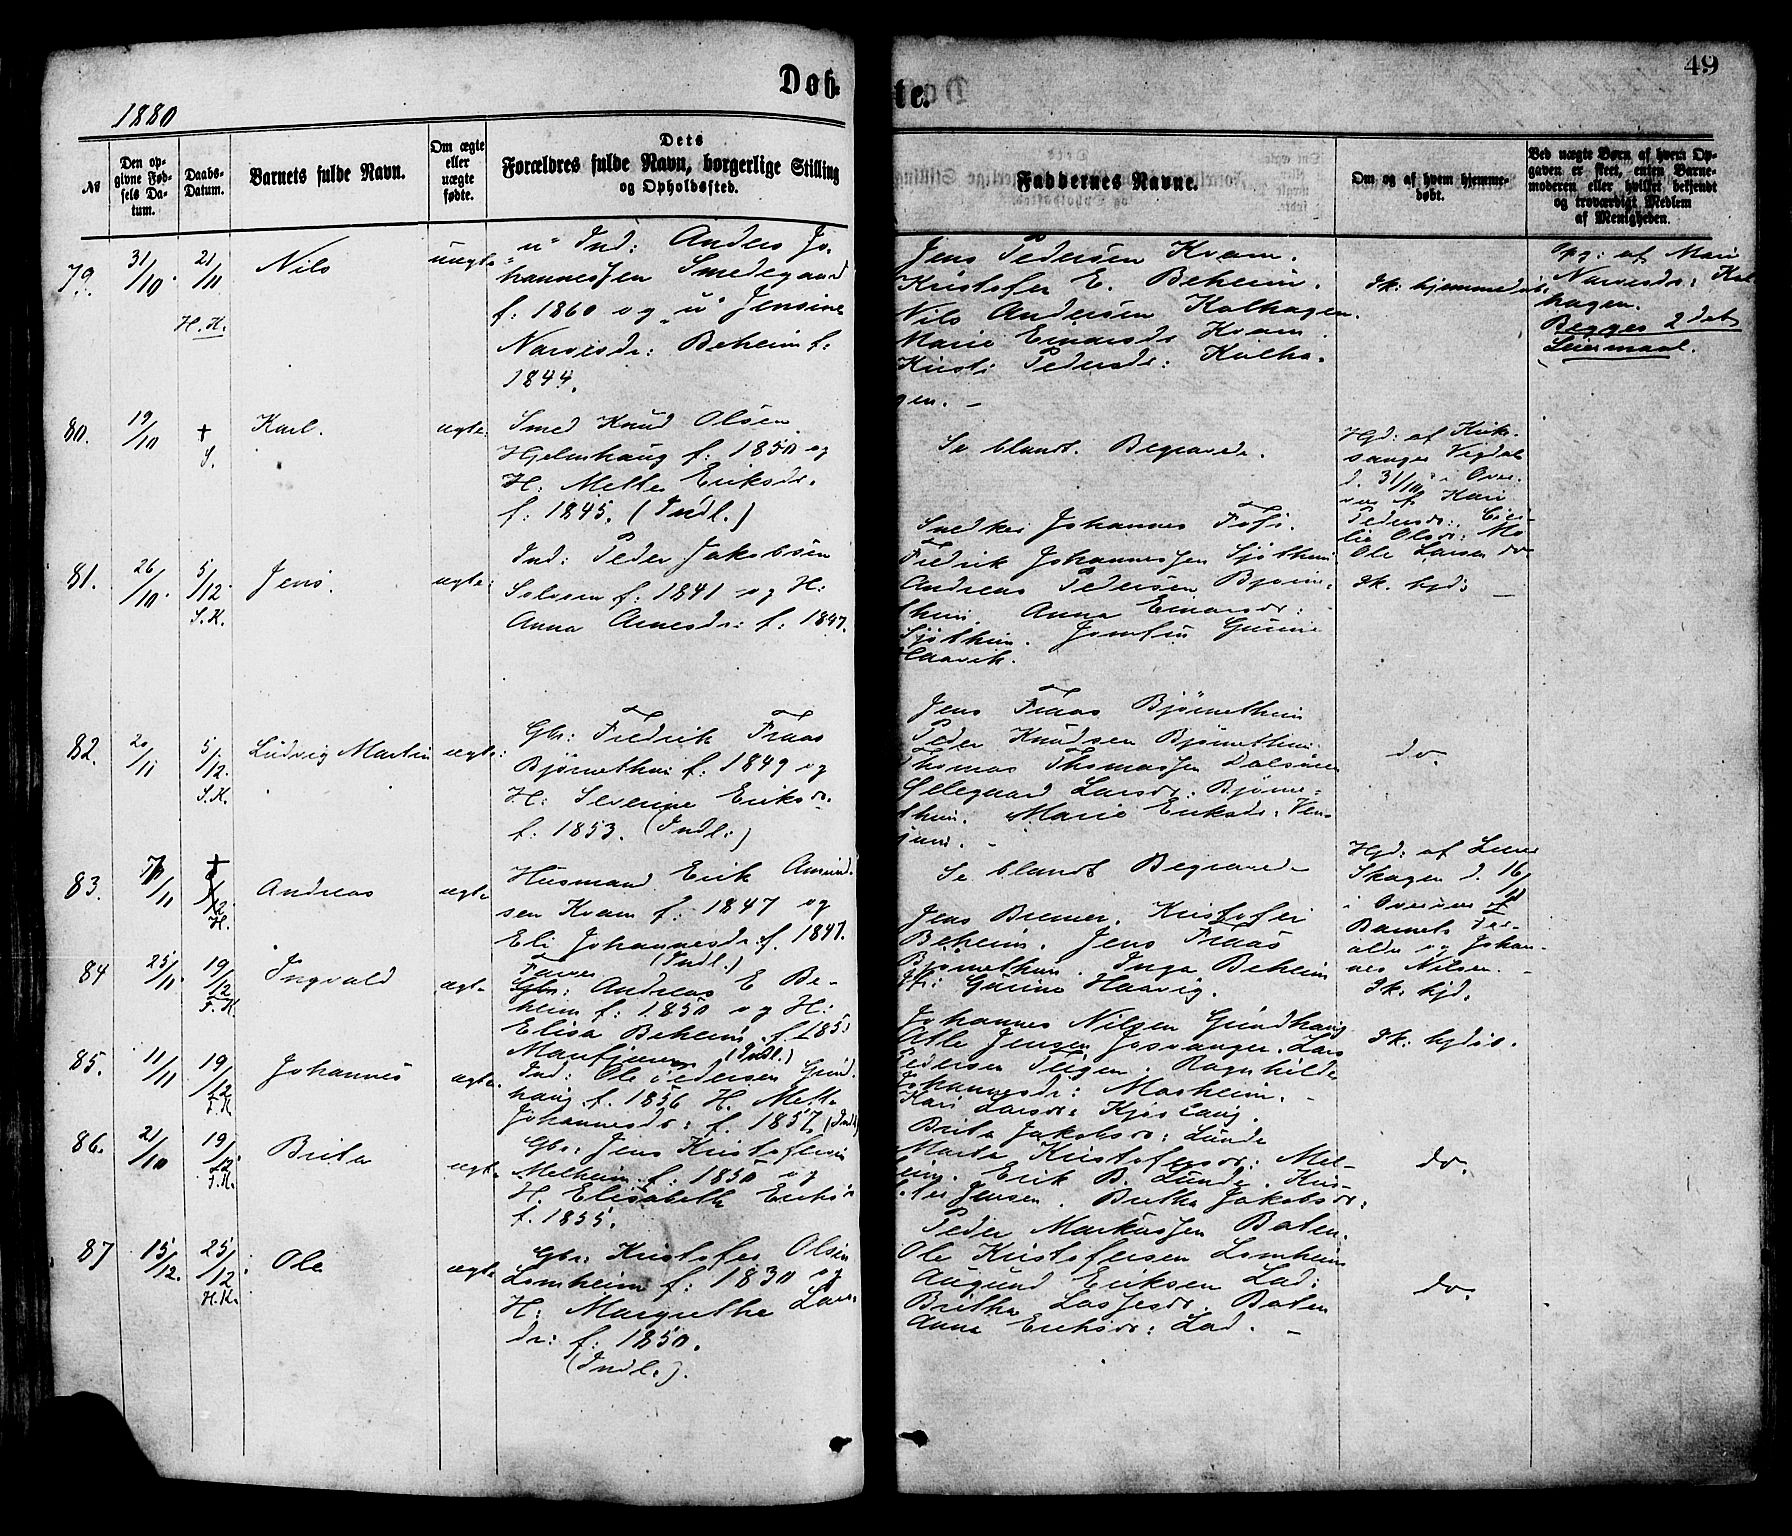 1880
Døb-
te.
49
№
Den op-
givne Fød-
sels Da-
tum.
Daabs-
Datum.
Barnets fulde Navn.
Om ægte
eller
uægte
fødte.
Dets
Forældres fulde Navn, borgerlige Stilling
og Opholdssted.
Faddernes Navne.
Om og af hvem hjemme-
døbt.
Ved uægte Børn af hvem Op-
gaven er skeet, enten Barne-
moderen eller hvilket bekjendt
og troværdigt Medlem
af Menigheden.
79. 31/10. 21/11 Nils uægte
H. K.
"u" Ind: Anders Jo-
hannessen Smedegaard
f. 1860 og "u" Jensine
Narvesdr: Beheim f.
1844.
Jens Pedersen Kvam.
Kristofer E. Beheim.
Nils Andersen Kalhagen.
Marie Einarsdr Kvam
Kristi Pedersdr: Kalha-
gen. -
Ik: hjemmedøbt.
Opg: af Mari
Narvesdr: Kal-
hagen.
Begges 2det
Leiermaal.
80. 19/10 + Karl. ægte:
S.
Smed Knud Olsen
Hjelmhaug f. 1850 og
H: Mette Eriksdr.
f. 1845. (Indl.)
Se blandt Begravede.
Hjd: af Kirk-
sanger Vigdal
d. 31/10 i Over-
vær af Kari
Pedersdr:
lie Olsdr: Mo
Ole Larsen do
81. 26/10. 5/12. Jens. ægte:
S. K.
Ind: Peder Jakobsen
f: 1841 og H:
Anna Arnesdr: f: 1847.
Snedker Johannes
Fredrik Johannessen Sjøthun
Andreas Pedersen Bjørne-
thun. Anna Einarsdr:
Sjøthun. Josefin Gurine
Haavik.
Ik. hjd: -
82. 20/11 5/12. Ludvig Martin ægte:
S. K.
Gbr: Fredrik Fraas
Bjørnethun f: 1849 og
H: Severine Eriksdr.
f: 1853. (Indl:)
Jens Fraas Bjørnethun
Peder Knudsen Bjørnethun.
Thomas Thomassen Dalsøren
Selegaard Larsdr: Bjørne-
thun. Marie Eriksdr: Ven-
jum. -
do.
83. 7/11 + Andreas ægte
H.
Husmand Erik Amund-
sen Kvam f: 1847 og
Eli Johannesdr. f. 1847.
(Indl.)
Se blandt Begravede
Hjd: af Lærer
Skagen d. 16/11
i Overvær af
Barnets For-
ældre og Johan-
nes Nilsen. -
84 25/11. 19/12 Ingvald ægte
F. K.
Farver
Gbr: Andreas E Be-
heim f: 1850 og H:
Elisa Beheim f. 1851
(Indl.)
Jens Bremer. Kristofer
Beheim. Jens Fraas
Bjørnethun. Inga Beheim
Jfr: Gurine Haavig.
Ik: hjd.
85. 11/11 19/12 Johannes ægte.
F. K.
Marifjæren
Ind: Ole Pedersen Grind-
haug f. 1856 H. Mette
Johannesdr: f. 1857. (Indl)
Johannes Nilsen Grindhaug
Atle Jensen Josvanger. Lars
Pedersen Teigen. Ragnhilde
Johannesdr: Marheim.
Kari Larsdr: Kjøslaug.
Ik: hjd.
86. 21/10 19/12. Brita ægte
F. K.
Gbr: Jens Kristofersen
Melheim f. 1850 og
H. Elisabeth Eriksdr
f. 1855.
Brita Jakobsdr: Lunde
Marta Kristofersdr: Mel-
heim. Erik B. Lunde. Kris-
Jensen. Britha Jakobsdr:
do.
87 15/12. 25/12 Ole ægte
H. K.
Gbr: Kristofer Olsen
Lomheim f: 1830 og
H: Margrethe Lars-
dr: f: 1850.
(Indl.).
Peder Markussen Baten.
Ole Kristofersen Lomheim
Augund Eriksen Lad:
Britha Lassesdr. Baten
Anna Eriksdr: Lad. -
do.